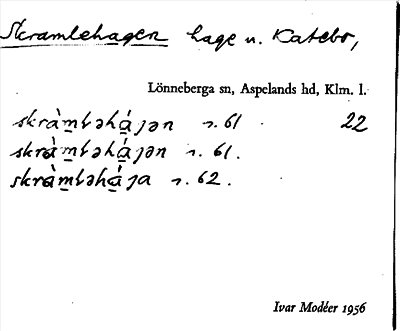 Skramlehagen hage u. Katebo,
Lönneberga sn, Aspelands hd, Klm. l.
skrà̱m̱ləhá̱ɟən r. 61 22
skrà̱m̱ləhá̱ɟən r. 61.
skrà̱m̱ləhá̱ɟa r. 62.
Ivar Modéer 1956